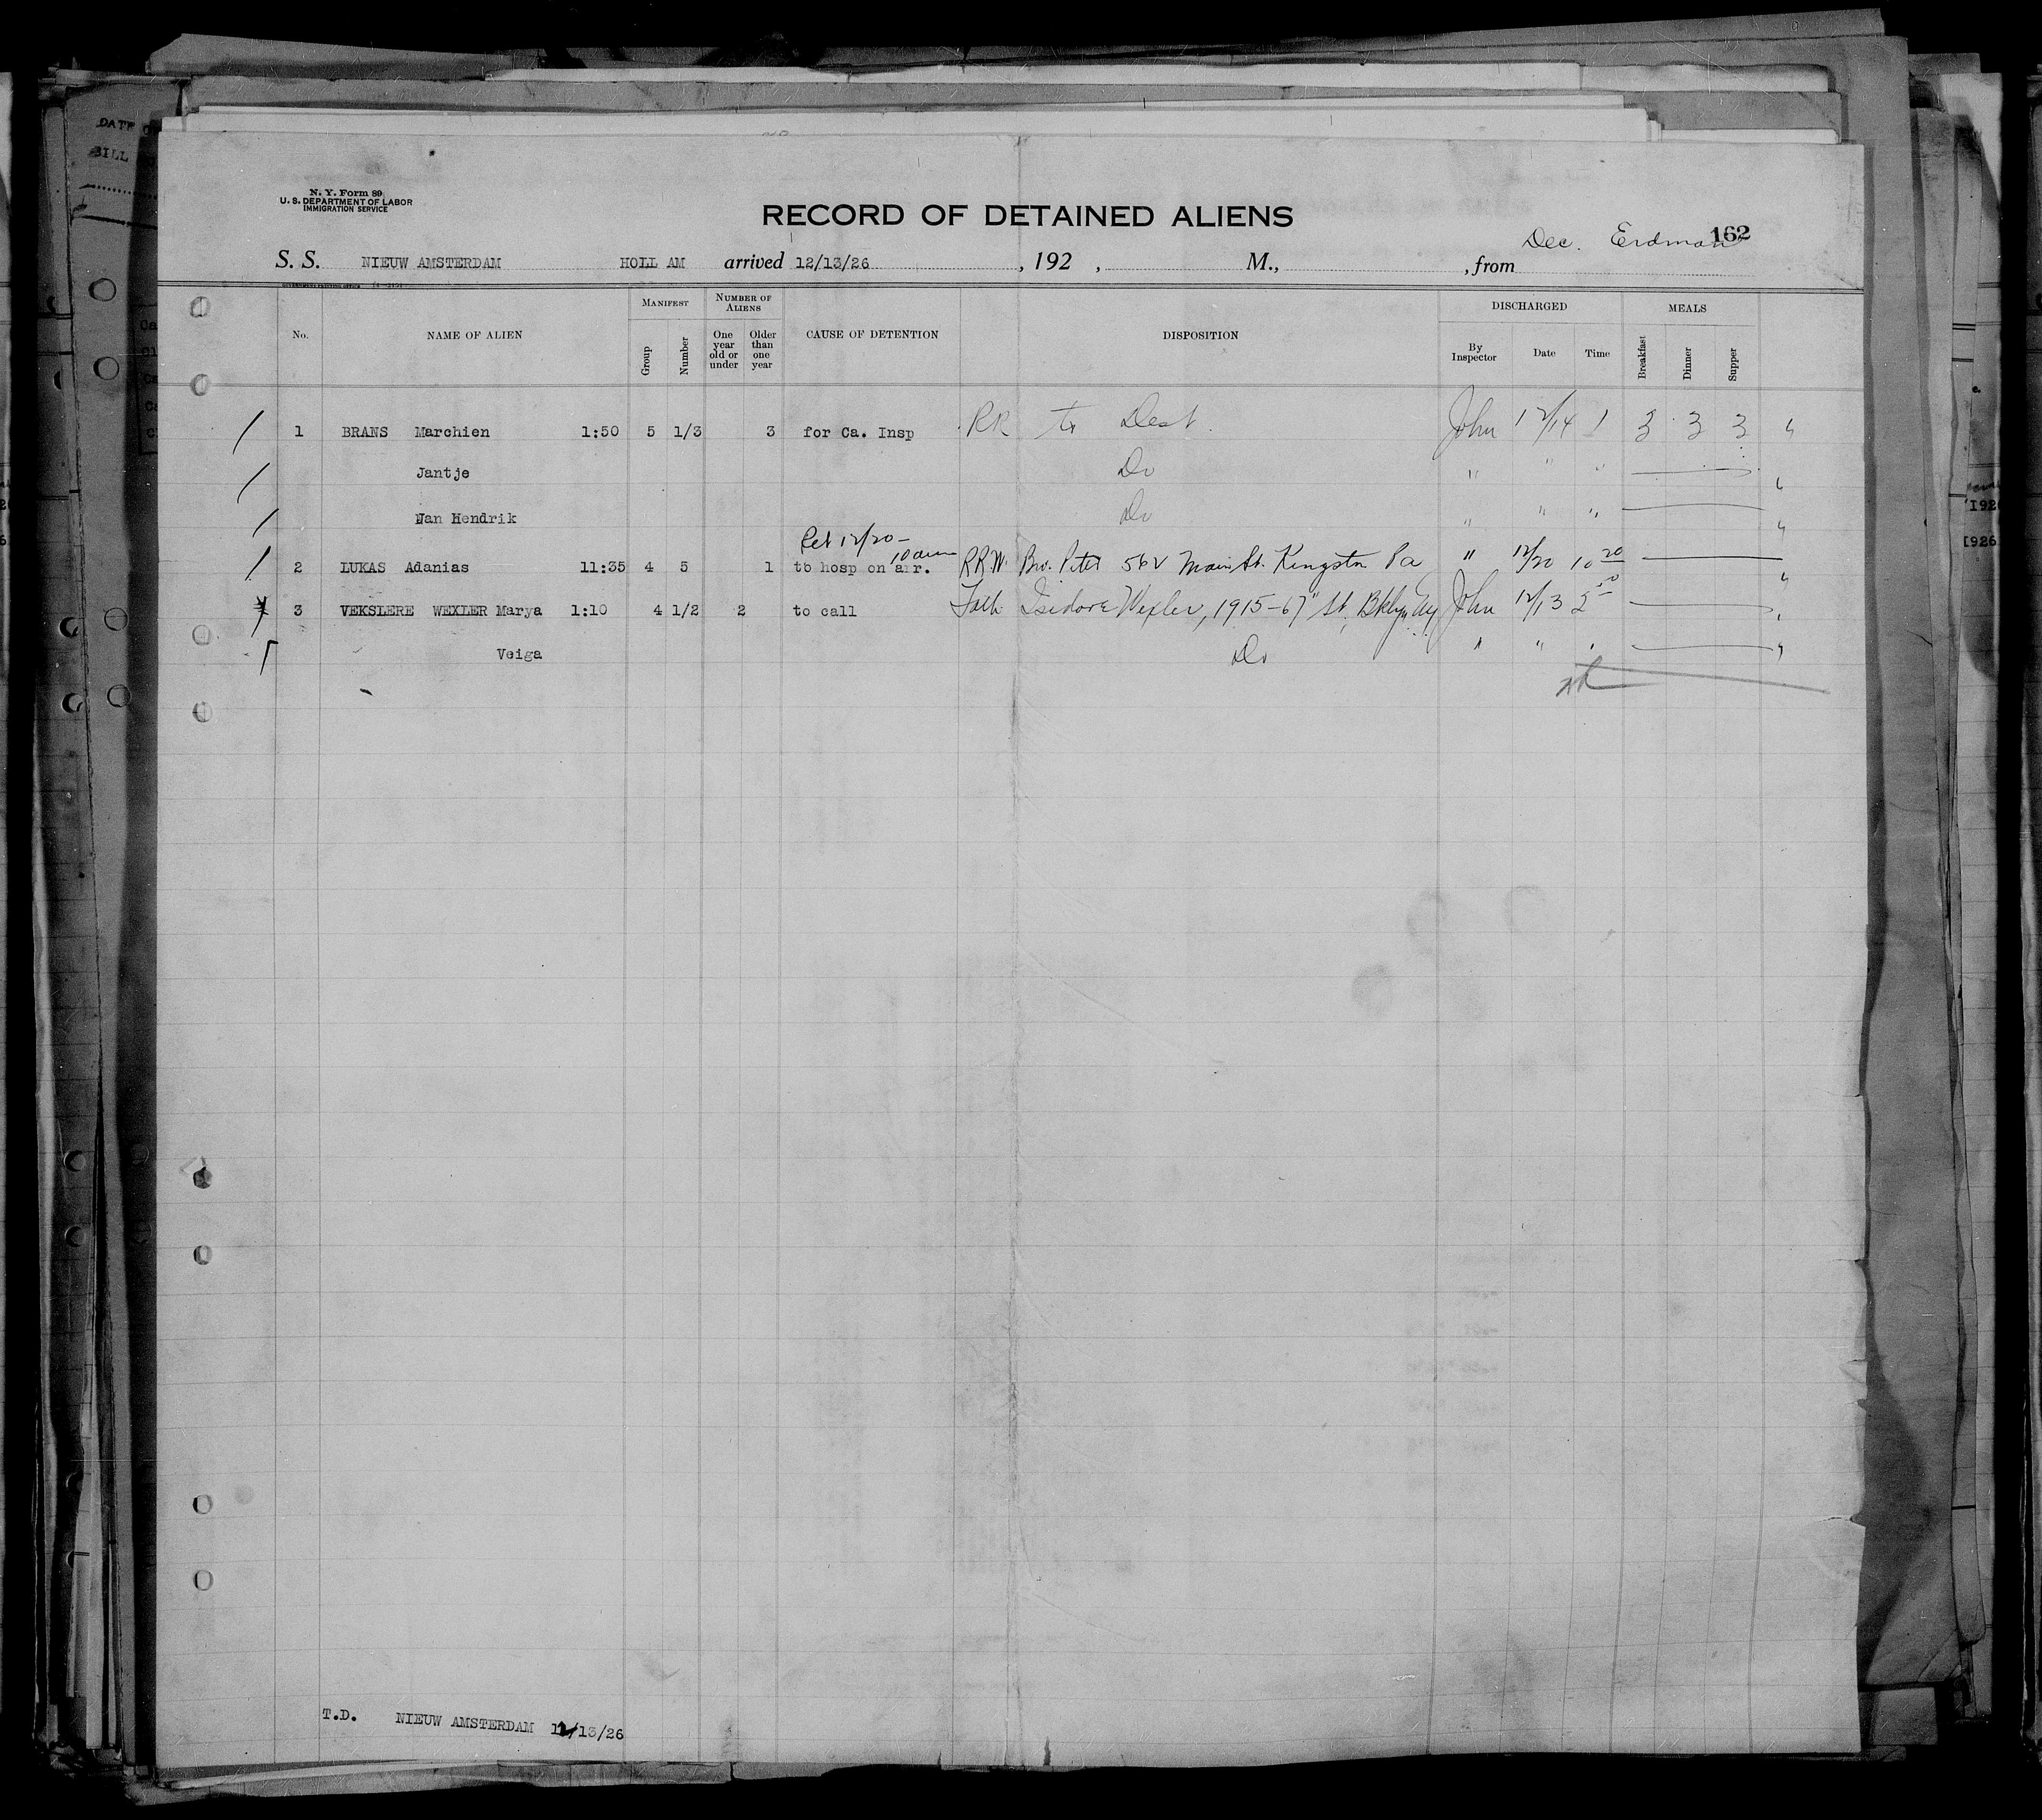 DATE O
BILL
N. Y. Form 89
U. S. DEPARTMENT OF LABOR
IMMIGRATION SERVICE
RECORD OF DETAINED ALIENS
162
Dec. Erdman
S. S. NIEUW AMSTERDAM HOLL AM arrived 12/13/26, 192 , M., , from
No. NAME OF ALIEN MANIFEST Group Number NUMBER OF ALIENS One year old or under Older than one year CAUSE OF DETENTION DISPOSITION DISCHARGED By Inspector Date Time MEALS Breakfast Dinner Supper
1 BRANS Marchien 1:50 5 1/3 3 for Ca. Insp RR to Dest. John 12/14 1 3 3 3
Jantje Do " " "
Jan Hendrik Do " " "
Rel 12/20 - 10 am
2 LUKAS Adanias 11:35 4 5 1 to hosp on arr. RRW Bro. Peter 562 Main St. Kingston Pa " 12/20 10 20
3 VEKSLERE WEXLER Marya 1:10 4 1/2 2 to call Fath Isidore Wexler, 1915-67" St, Bklyn NY John 12/13
Veiga Do " " "
T.D. NIEUW AMSTERDAM 12/13/26